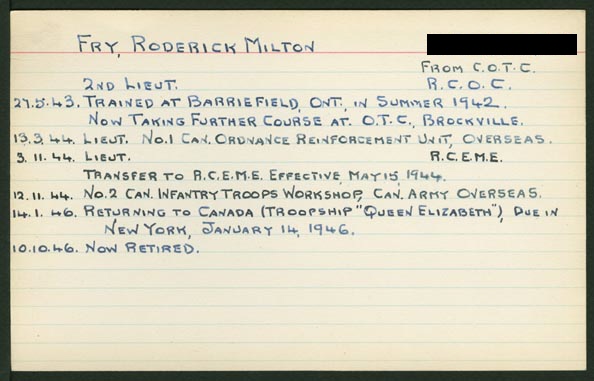 FRY, RODERICK MILTON
FROM C.O.T.C.
2ND LIEUT. R.C.O.C.
27.5.43. TRAINED AT BARRIEFIELD, ONT., IN SUMMER 1942.
NOW TAKING FURTHER COURSE AT O.T.C., BROCKVILLE.
13.3.44. LIEUT. NO.1 CAN. ORDNANCE REINFORCEMENT UNIT, OVERSEAS.
3.11.44. LIEUT. R.C.E.M.E.
TRANSFER TO R.C.E.M.E. EFFECTIVE MAY 15, 1944.
12.11.44. NO.2 CAN. INFANTRY TROOPS WORKSHOP, CAN. ARMY OVERSEAS.
14.1.46. RETURNING TO CANADA (TROOPSHIP "QUEEN ELIZABETH"), DUE IN
NEW YORK, JANUARY 14, 1946.
10.10.46. NOW RETIRED.